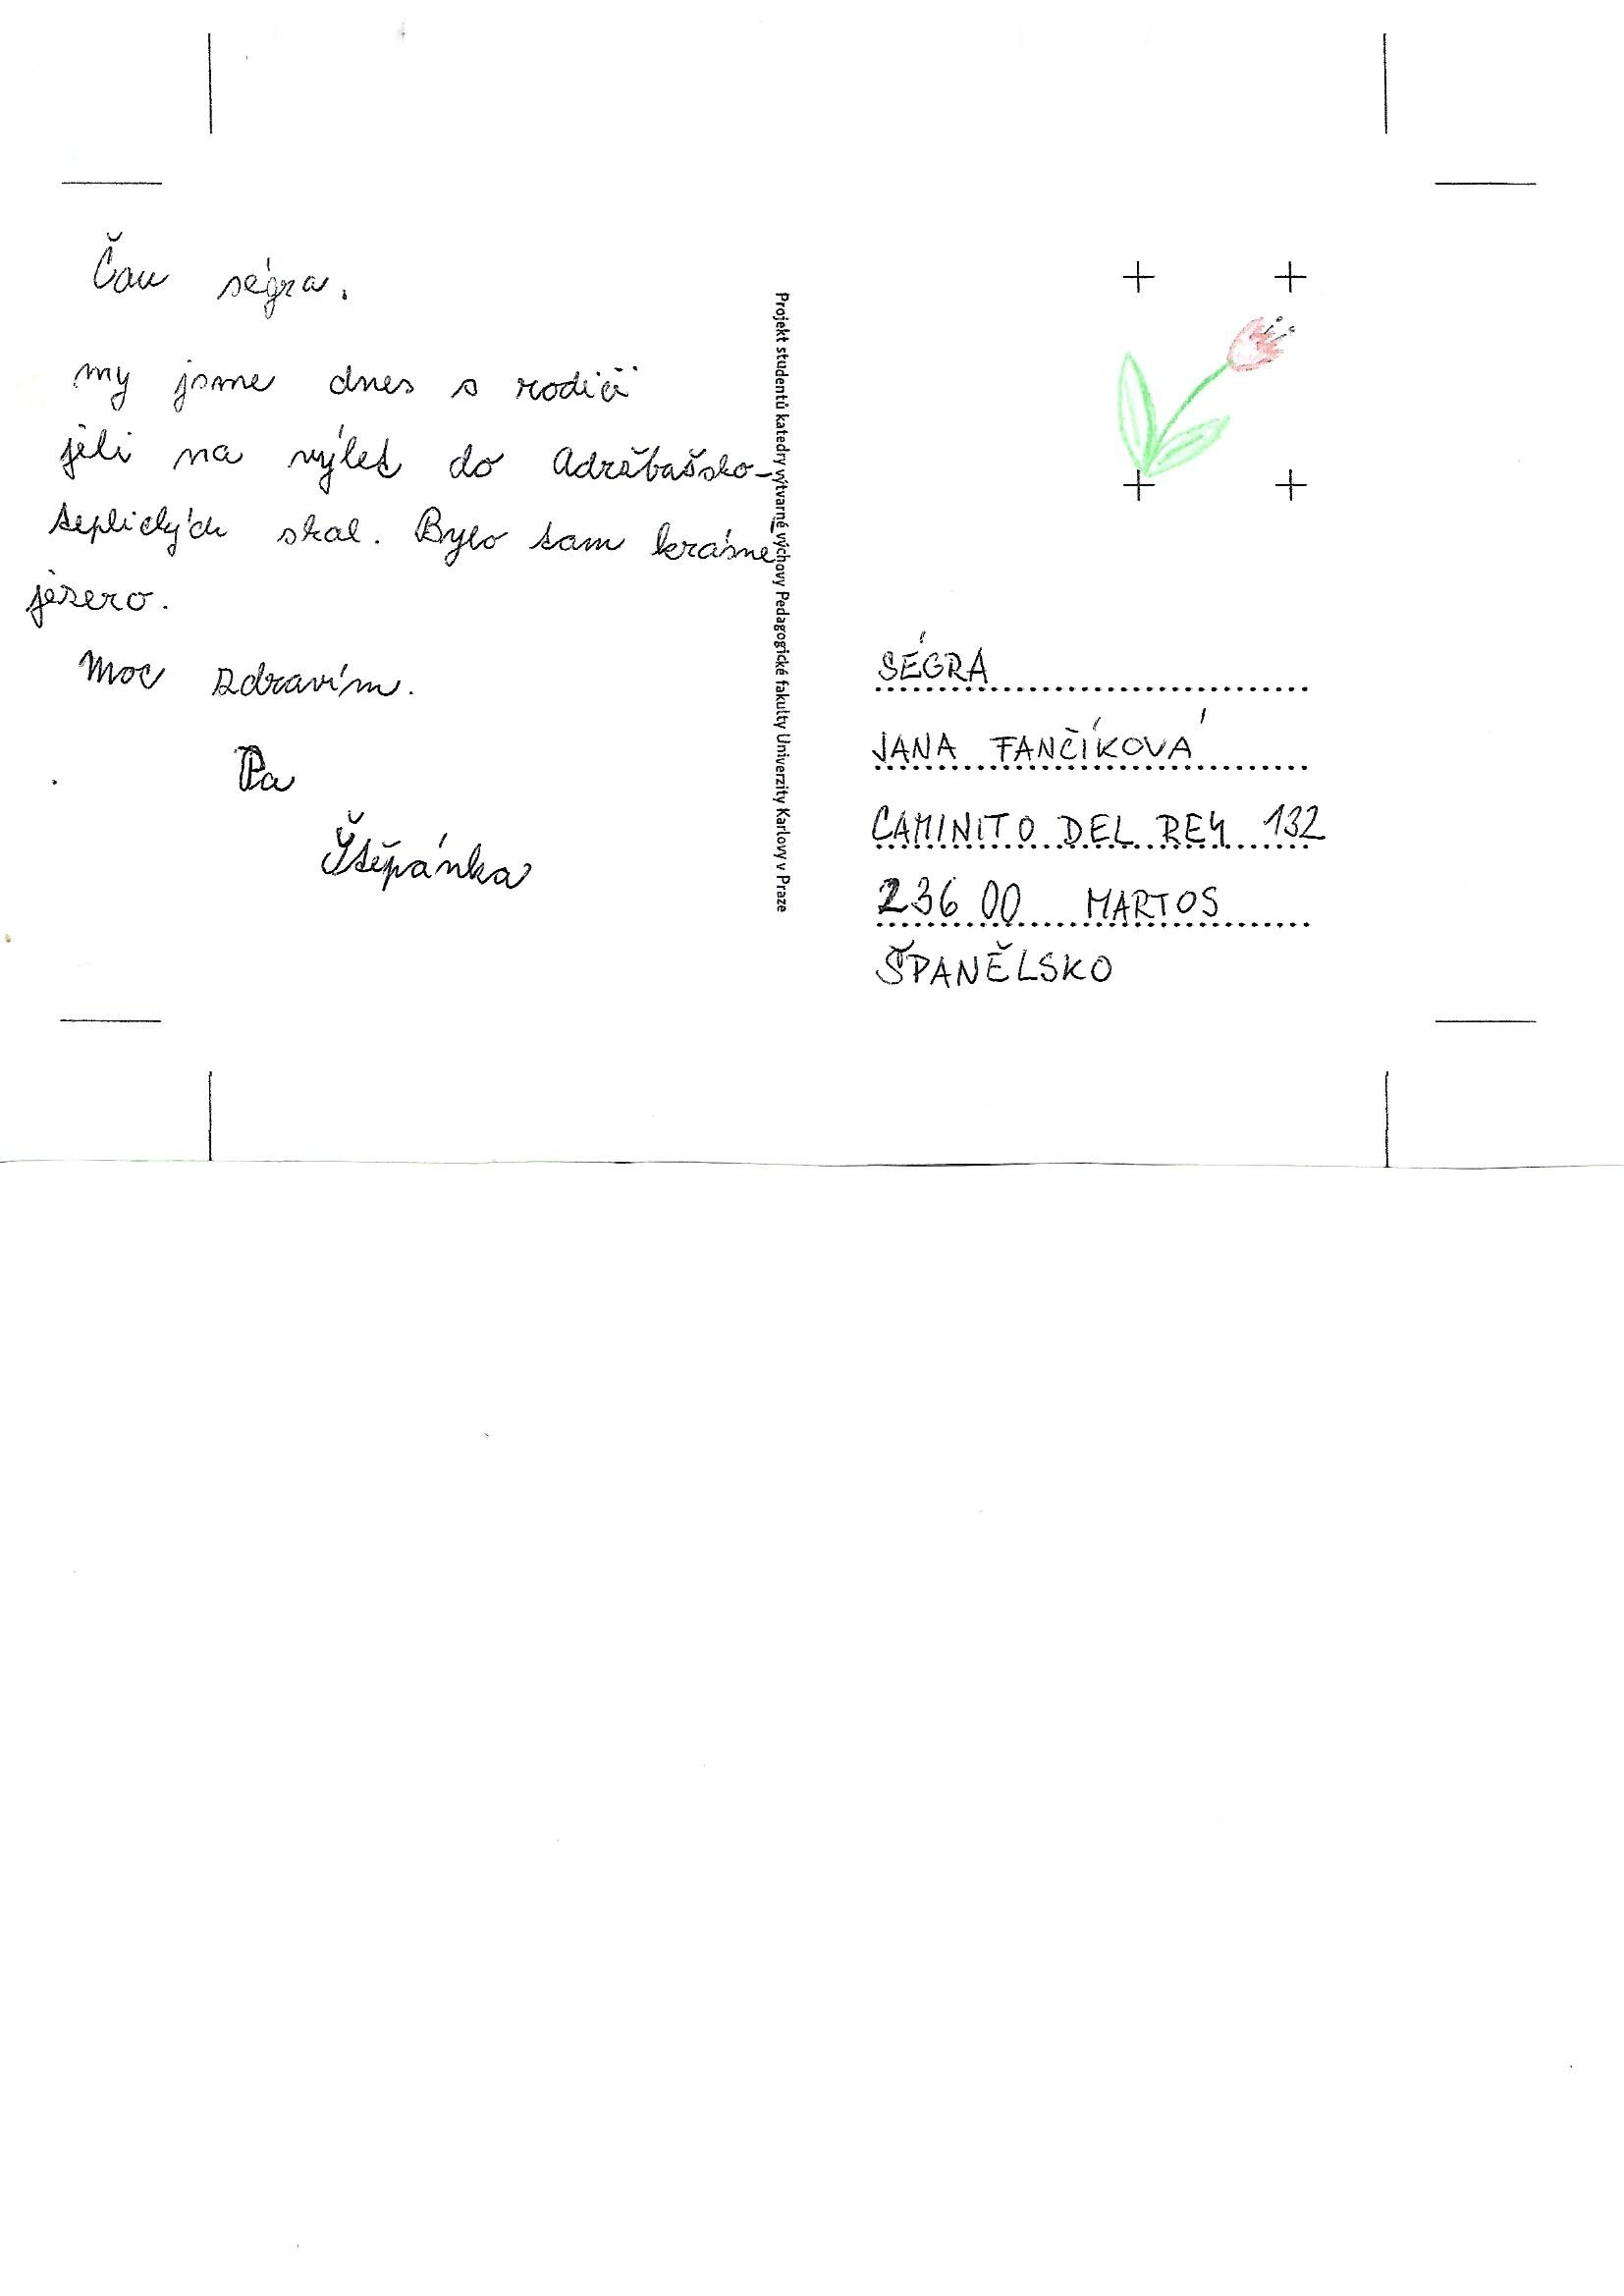 Čau ségra.
my jsme dnes s rodiči
jeli na výlet do Adršbašsko-
teplických skal. Bylo tam krásné
jezero.
Moc zdravím.
Pa
Štěpánka
Projekt studentů katedry výtvarné výchovy Pedagogické fakulty Univerzity Karlovy v Praze
SÉGRA
JANA FANČÍKOVÁ
CAMINITO DEL REY 132
236 00 MARTOS
ŠPANĚLSKO